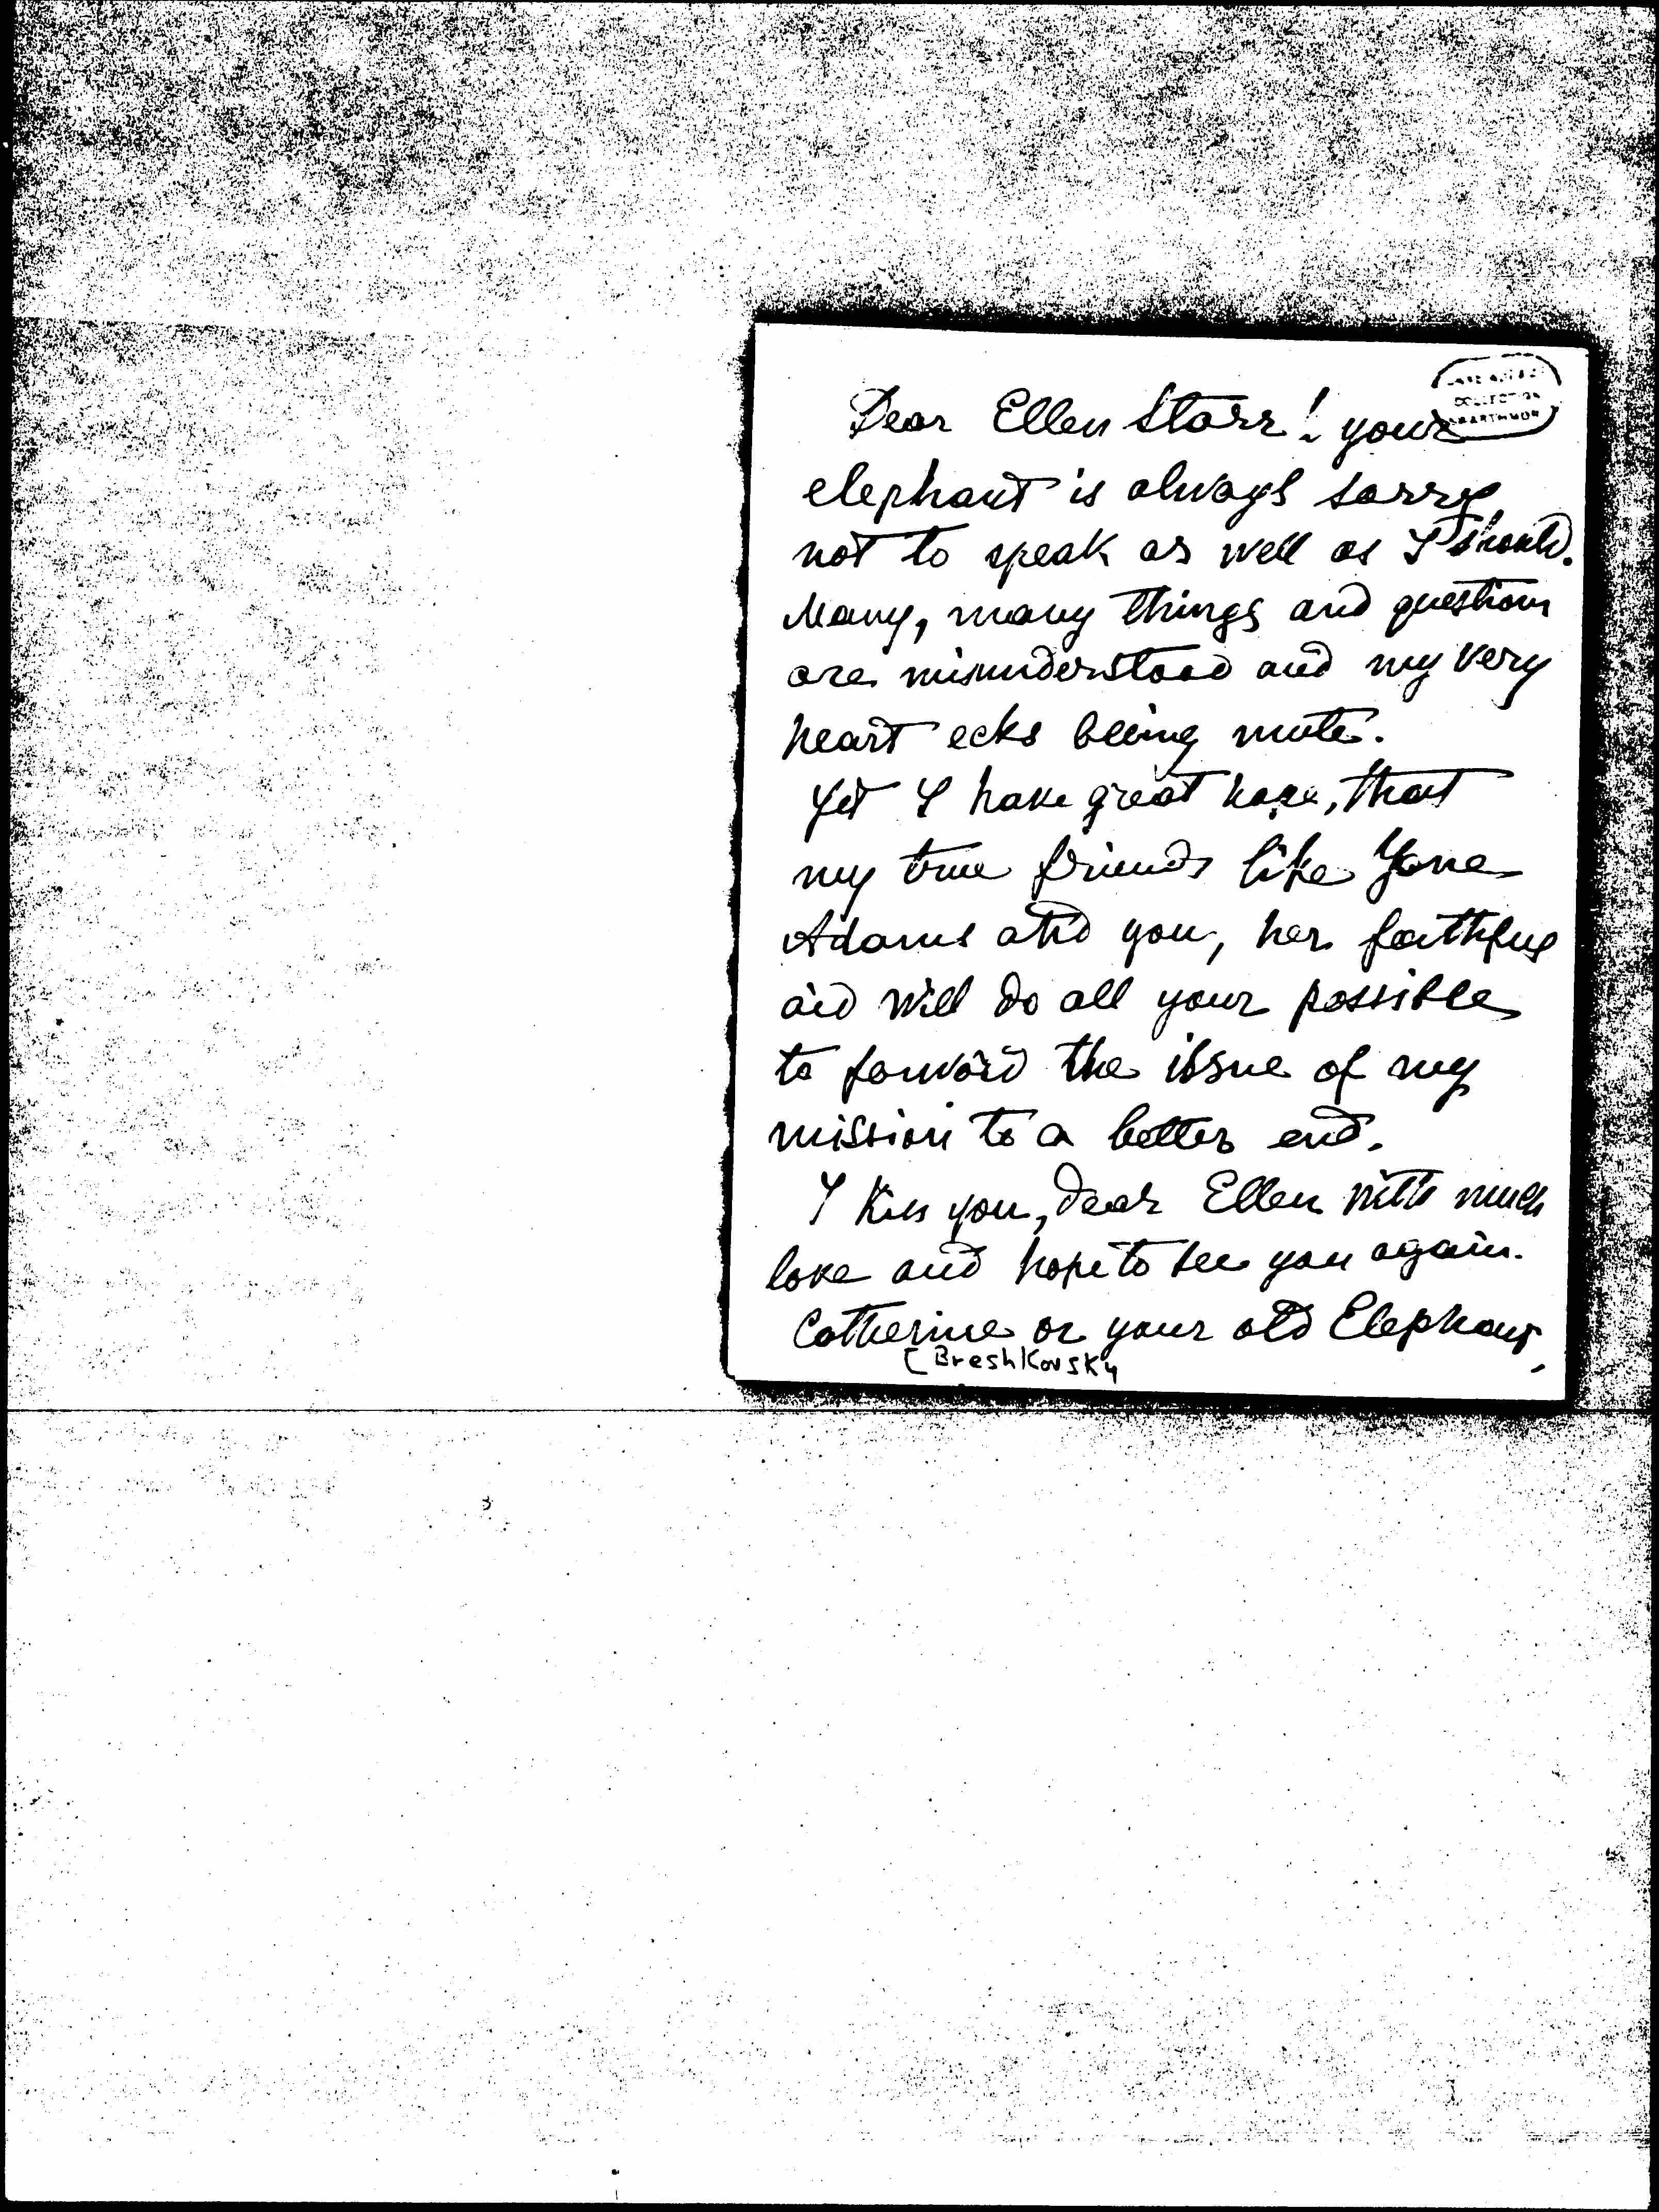 COLLECTION
Dear Ellen Starr! your
elephant is always sorry
not to speak as well as I should.
Many, many things and questions
are misunderstood and my very
heart ecks beeing mute.
Yet I have great hope, that
my true friends like Yane
Adams and you, her faithful
aid will do all your possible
to forword the issue of my
mission to a better end.
I kiss you, dear Ellen with much
love and hope to see you again.
Catherine or your old Elephant,
( Breshkovsky